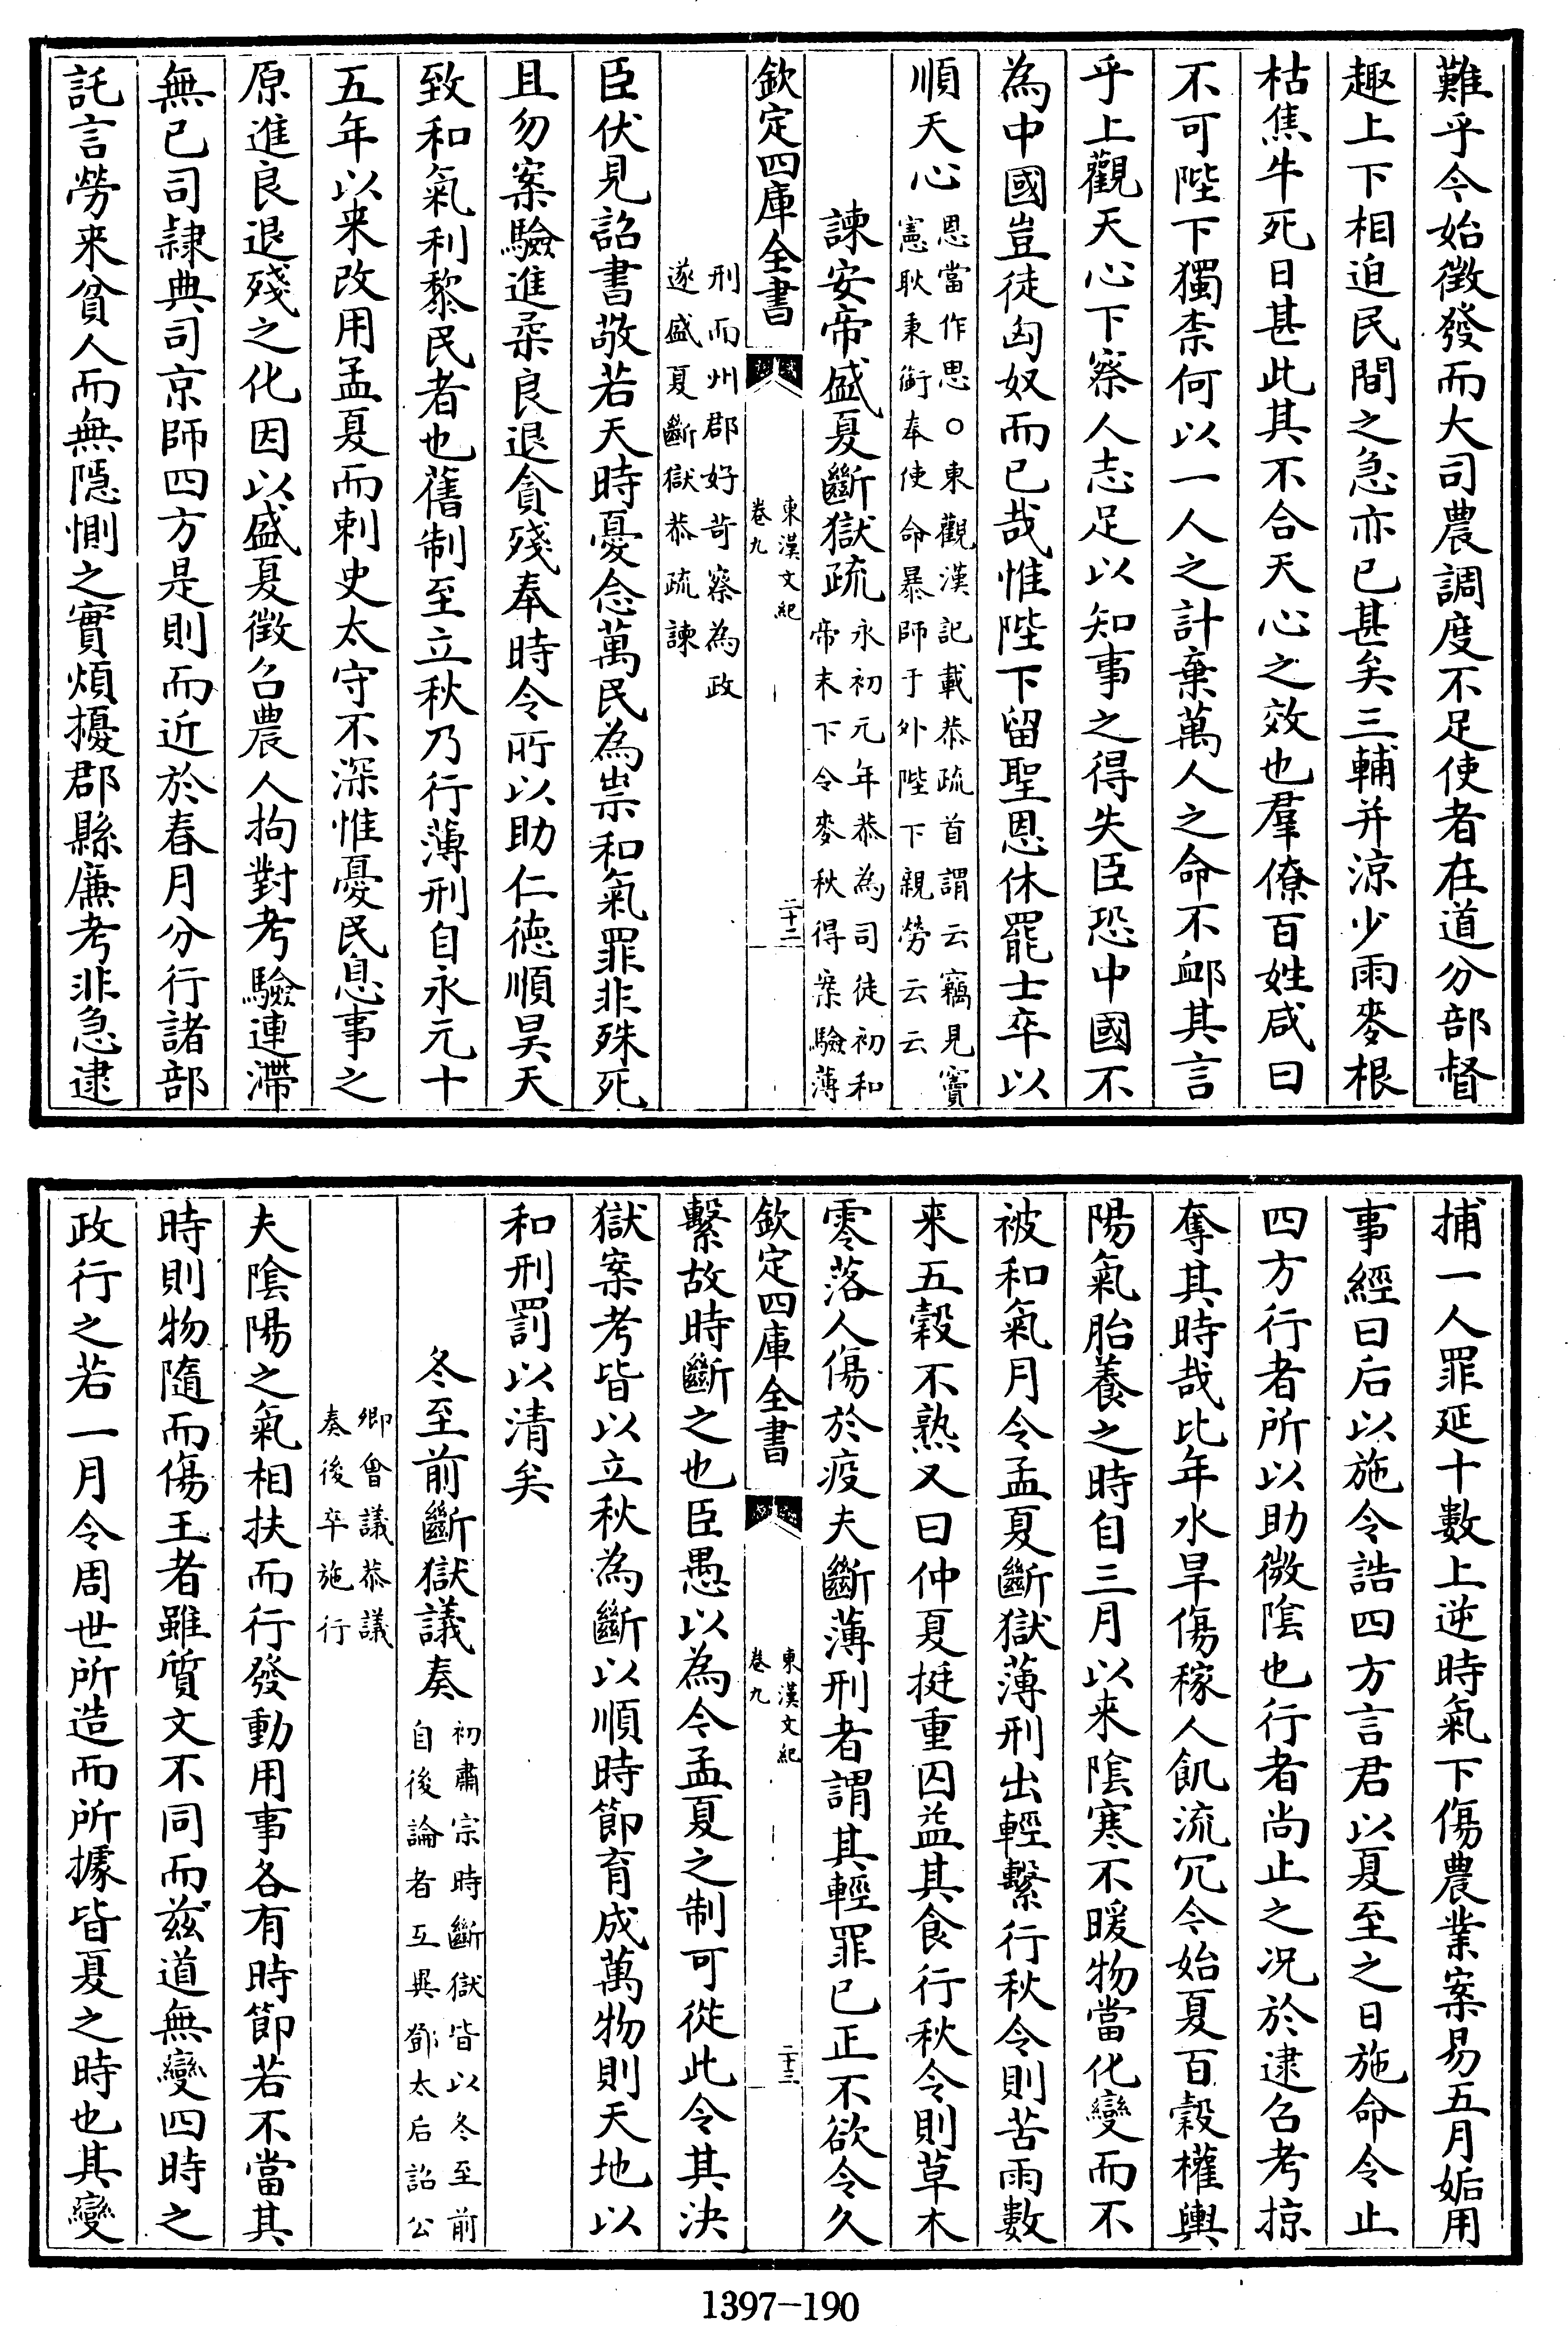 難乎今始徵發而大司農調度不足使者在道分部督
趣上下相迫民間之急亦已甚矣三輔并涼少雨麥根
枯焦牛死日甚此其不合天心之效也羣僚百姓咸曰
不可陛下獨柰何以一人之計棄萬人之命不䘏其言
乎上觀天心下察人志足以知事之得失臣恐中國不
為中國豈徒匈奴而已哉惟陛下留聖恩休罷士卒以
順天心
恩當作思○東觀漢記載恭疏首謂云竊見竇
憲耿秉銜奉使命暴師于外陛下親勞云云
諫安帝盛夏斷獄疏
永初元年恭為司徒初和
帝末下令麥秋得案驗薄
欽定四庫全書
東漢文紀
卷九
二十二
刑而州郡好苛察為政
遂盛夏斷獄恭疏諫
臣伏見詔書敬若天時憂念萬民為祟和氣罪非殊死
且勿案驗進柔良退貪殘奉時令所以助仁德順昊天
致和氣利黎民者也舊制至立秋乃行薄刑自永元十
五年以来改用孟夏而刺史太守不深惟憂民息事之
原進良退殘之化因以盛夏徵召農人拘對考驗連滯
無已司隷典司京師四方是則而近於春月分行諸部
託言勞来貧人而無隱惻之實煩擾郡縣廉考非急逮
捕一人罪延十數上逆時氣下傷農業案易五月姤用
事經曰后以施令誥四方言君以夏至之日施命令止
四方行者所以助微陰也行者尚止之况於逮召考掠
奪其時哉比年水旱傷稼人飢流冗今始夏百穀權輿
陽氣胎養之時自三月以来陰寒不暖物當化變而不
被和氣月令孟夏斷獄薄刑出輕繫行秋令則苦雨數
来五穀不熟又曰仲夏挺重囚益其食行秋令則草木
零落人傷於疫夫斷薄刑者謂其輕罪已正不欲令久
欽定四庫全書
東漢文紀
卷九
二十三
繫故時斷之也臣愚以為今孟夏之制可從此令其決
獄案考皆以立秋為斷以順時節育成萬物則天地以
和刑罰以清矣
冬至前斷獄議奏
初肅宗時斷獄皆以冬至前
自後論者互異鄧太后詔公
卿會議恭議
奏後卒施行
夫陰陽之氣相扶而行發動用事各有時節若不當其
時則物隨而傷王者雖質文不同而兹道無變四時之
政行之若一月令周世所造而所據皆夏之時也其變
1397-190